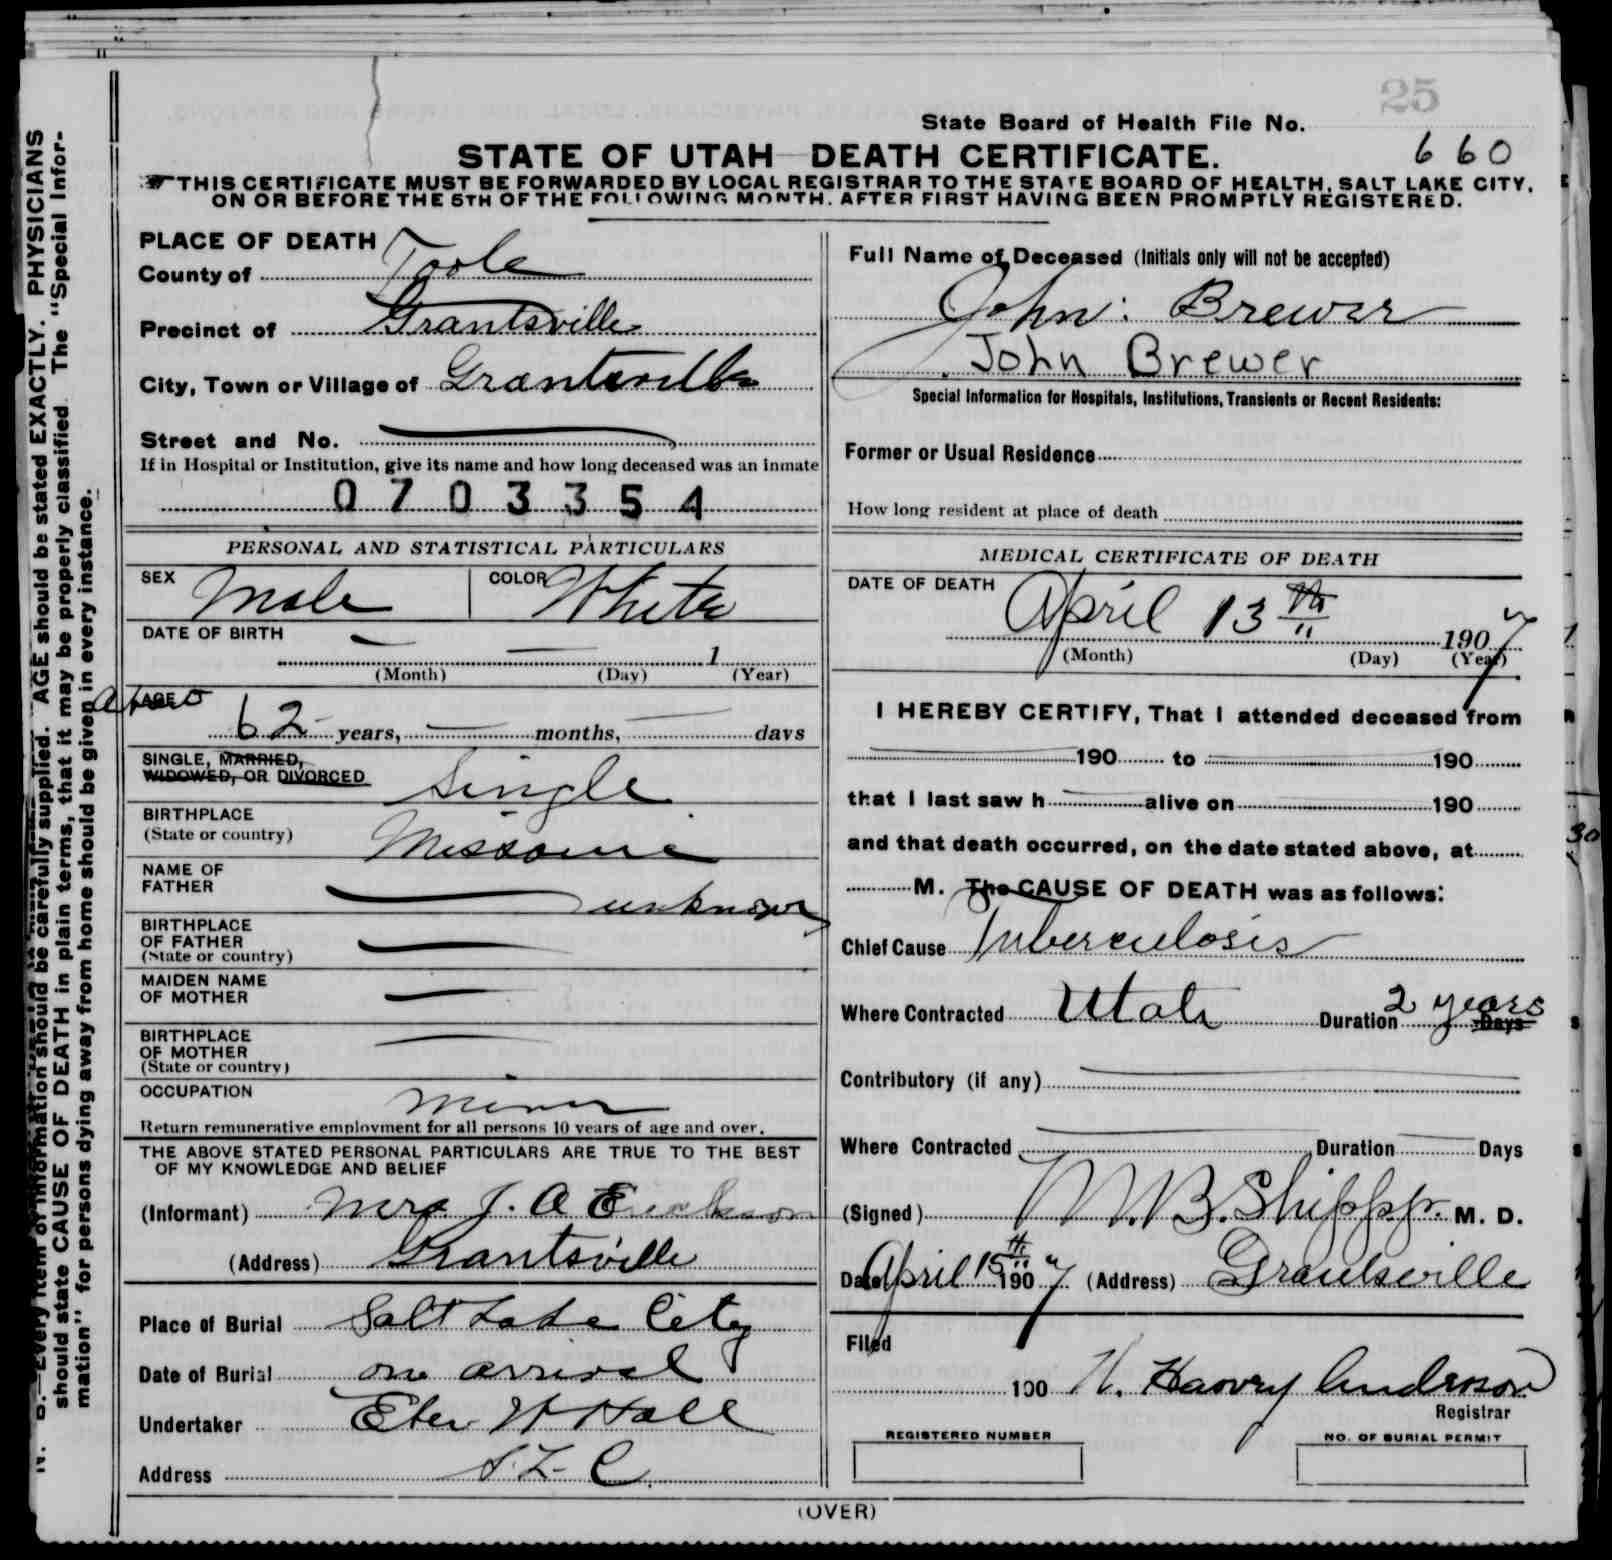 25
State Board of Health File No. 660
STATE OF UTAH DEATH CERTIFICATE.
THIS CERTIFICATE MUST BE FORWARDED BY LOCAL REGISTRAR TO THE STATE BOARD OF HEALTH, SALT LAKE CITY,
ON OR BEFORE THE 5TH OF THE FOLLOWING MONTH, AFTER FIRST HAVING BEEN PROMPTLY REGISTERED.
PLACE OF DEATH
County of Toole
Precinct of Grantsville
City, Town or Village of Grantsville
Street and No.
If in Hospital or Institution, give its name and how long deceased was an inmate
0703354
PERSONAL AND STATISTICAL PARTICULARS
SEX Male COLOR White
DATE OF BIRTH
1
(Month) (Day) (Year)
AGE About
62 years, months, days
SINGLE, MARRIED,
WIDOWED, OR DIVORCED Single
BIRTHPLACE
(State or country) Missourie
NAME OF
FATHER unknown
BIRTHPLACE
OF FATHER
(State or country)
MAIDEN NAME
OF MOTHER
BIRTHPLACE
OF MOTHER
(State or country)
OCCUPATION miner
Return remunerative employment for all persons 10 years of age and over.
THE ABOVE STATED PERSONAL PARTICULARS ARE TRUE TO THE BEST
OF MY KNOWLEDGE AND BELIEF
(Informant) Mrs J. A Erickson
(Address) Grantsville
Place of Burial Salt Lake City
Date of Burial on arrival
Undertaker Eber W Hall
Address S. L. C.
Full Name of Deceased (Initials only will not be accepted)
John Brewer
John Brewer
Special Information for Hospitals, Institutions, Transients or Recent Residents:
Former or Usual Residence
How long resident at place of death
MEDICAL CERTIFICATE OF DEATH
DATE OF DEATH April 13th 1907
(Month) (Day) (Year)
I HEREBY CERTIFY, That I attended deceased from
190 to 190
that I last saw h alive on 190
and that death occurred, on the date stated above, at
M. The CAUSE OF DEATH was as follows:
Chief Cause Tuberculosis
Where Contracted Utah Duration 2 years Days
Contributory (if any)
Where Contracted Duration Days
(Signed) M. B. Shipp M. D.
Date April 15th 1907 (Address) Grantsville
Filed
190 N. Harvey Anderson
Registrar
REGISTERED NUMBER NO. OF BURIAL PERMIT
(OVER)
N. B.—Every item of information should be carefully supplied. AGE should be stated EXACTLY. PHYSICIANS
should state CAUSE OF DEATH in plain terms, that it may be properly classified. The "Special Infor-
mation" for persons dying away from home should be given in every instance.
30